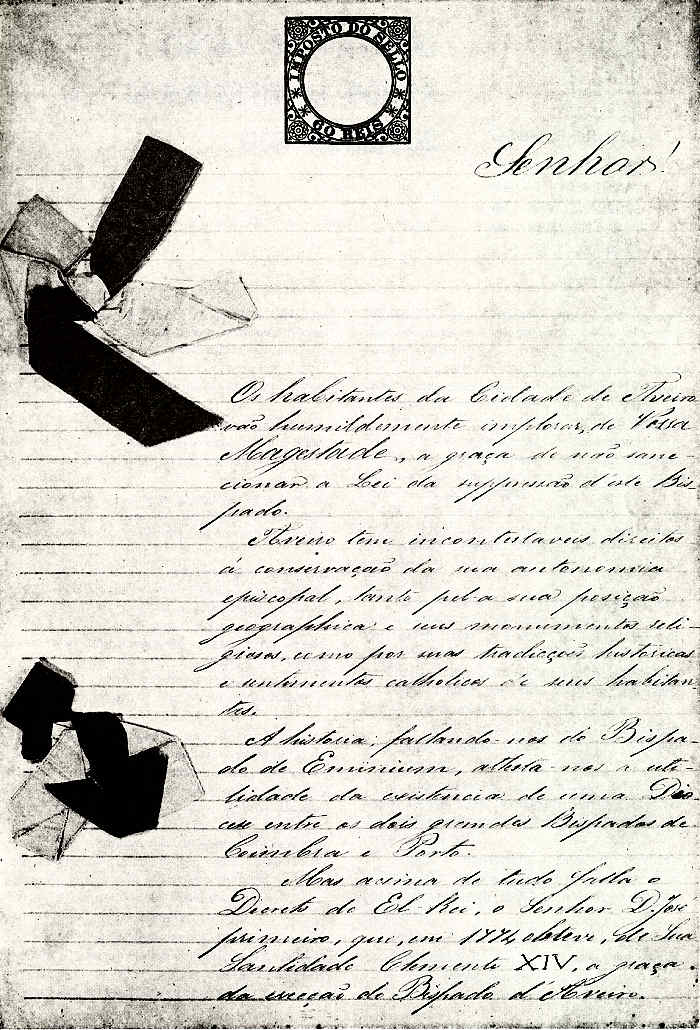 IMPOSTO DO SELLO
60 REIS
Senhor!
Os habitantes da Cidade de Aveiro
vão humildemente implorar, de Vossa
Magestade, a graça de não sanc-
cionar a Lei da suppressão d'este Bis-
pado.
Aveiro tem incontestaveis direitos
á conservação da sua autonomia
episcopal, tanto pela sua posição
geographica e seus monumentos reli-
giosos, como por suas tradicções historicas
e sentimentos catholicos de seus habitan
tes.
A historia, fallando-nos do Bispa-
do de Eminium, attesta-nos a uti-
lidade da existencia de uma Dio
cese entre os dois grandes Bispados de
Coimbra e Porto.
Mas acima de tudo falla o
Decreto de El-Rei, o Senhor D. José
primeiro, que, em 1774, obteve, de Sua
Santidade Clemente XIV, a graça
da erecção do Bispado d'Aveiro.